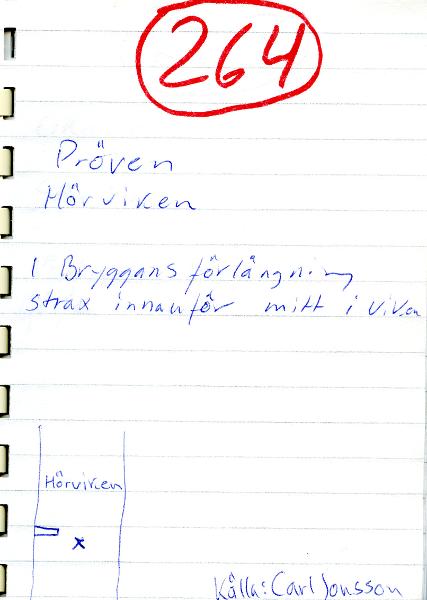 264
Pröven
Hörviken
I Bryggans förlängning
strax innanför mitt i viken
Hörviken
x
Källa: Carl Jonsson